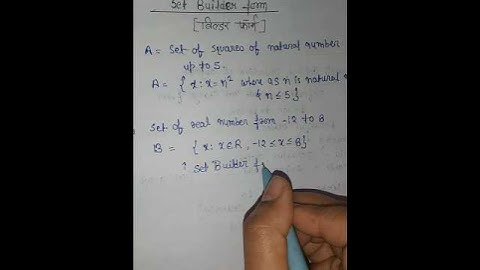 Set Builder form
[बिल्डर फॉर्म]
A = Set of squares of natural number
up to 5.
A = { x : x = n² where as n is natural
& n ≤ 5 }
Set of real number form -12 to 8
B = { x : x ∈ R , -12 ≤ x ≤ 8 }
Set Builder f